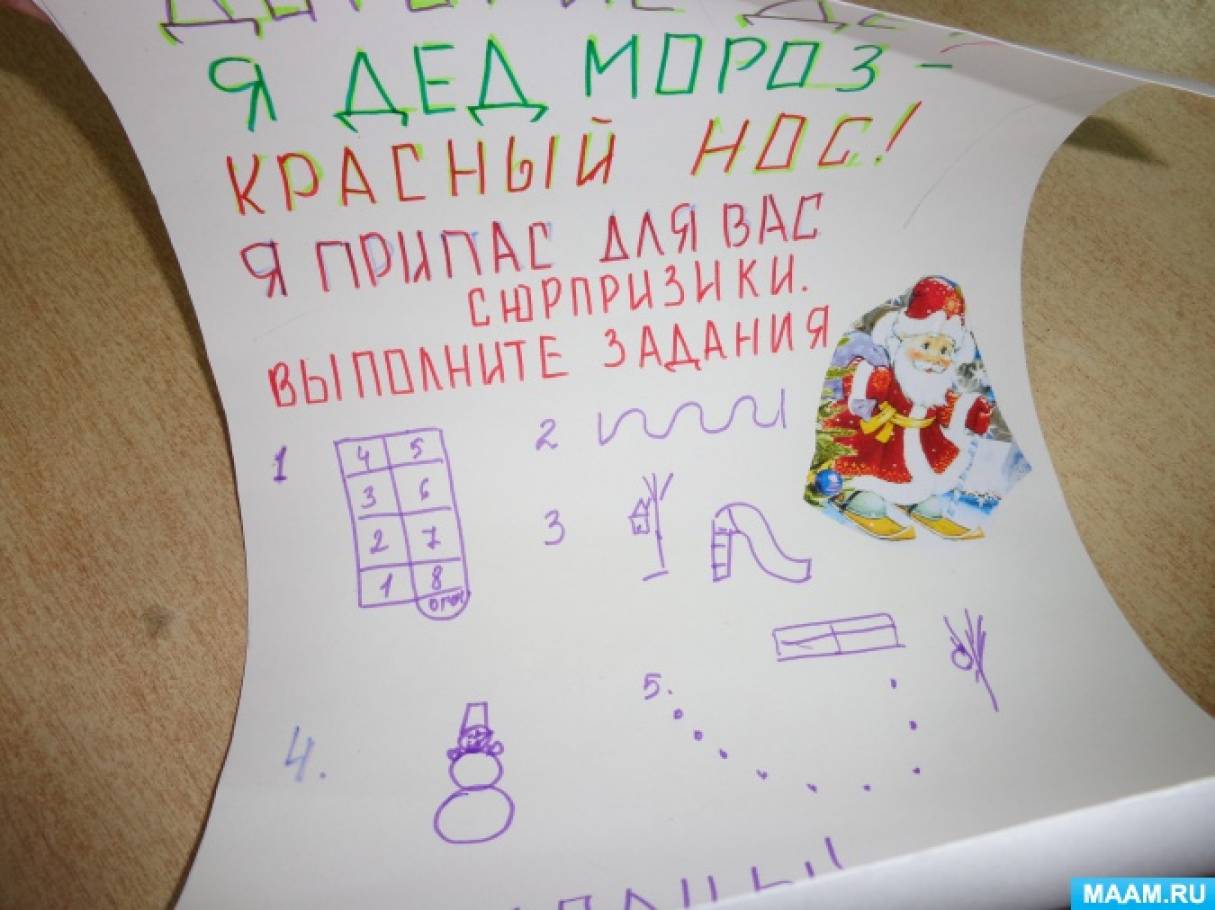 Я ДЕД МОРОЗ -
КРАСНЫЙ НОС!
Я ПРИПАС ДЛЯ ВАС
СЮРПРИЗИКИ.
ВЫПОЛНИТЕ ЗАДАНИЯ
1
4 5
3 6
2 7
1 8
ОГОНЬ
2
3
4.
5.
MAAM.RU